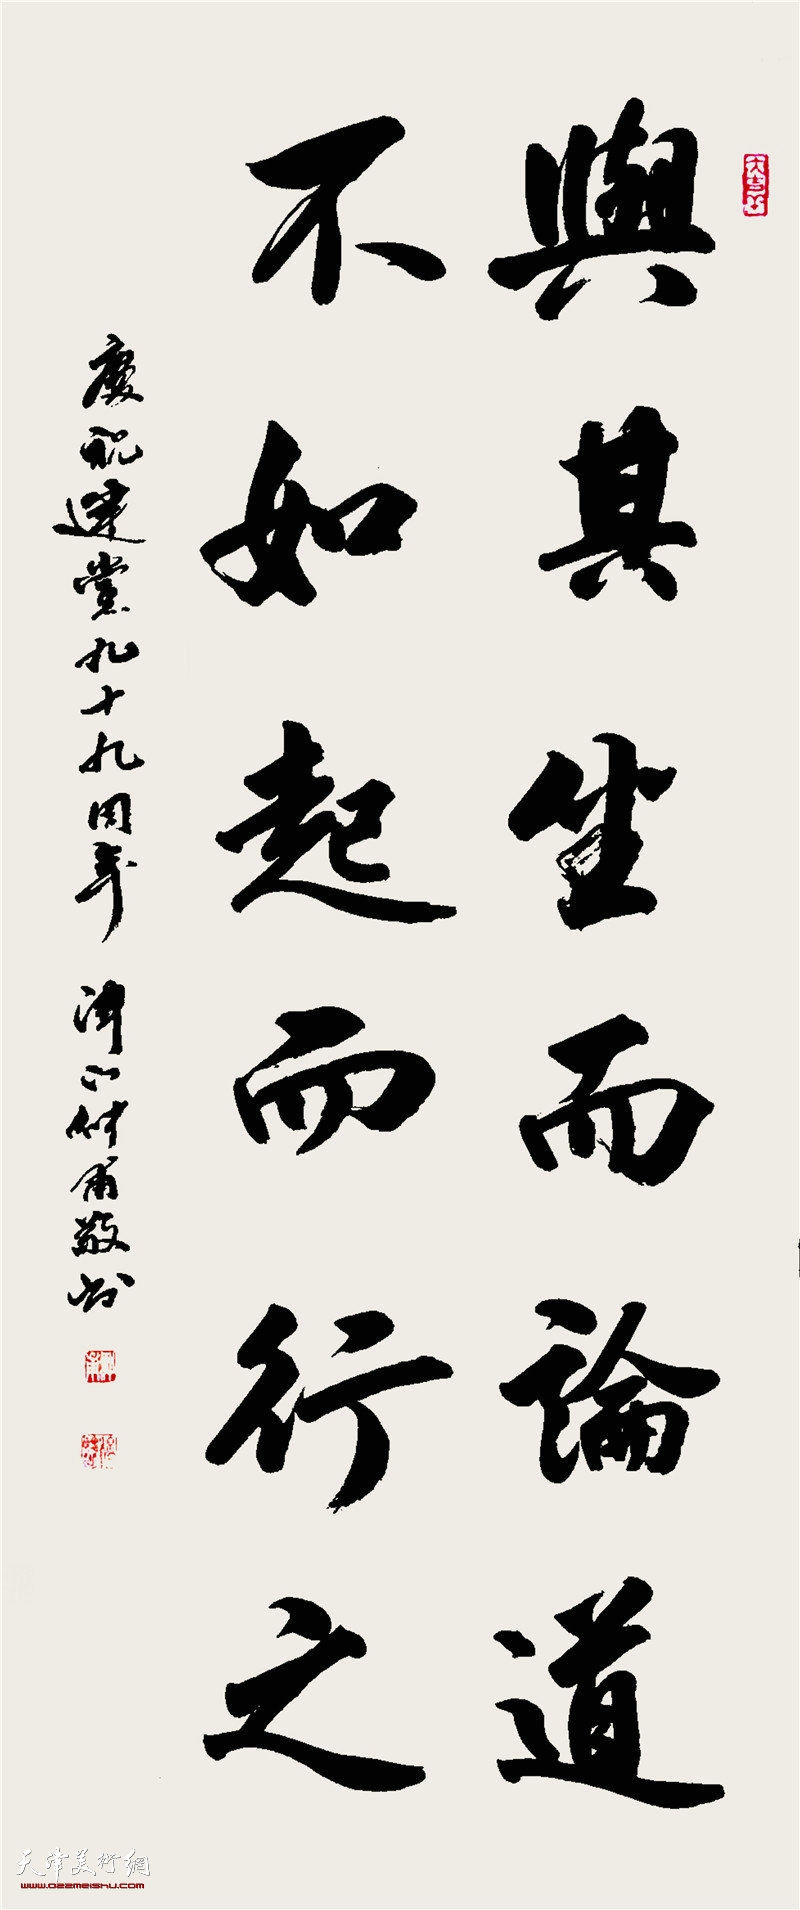 與其坐而論道
不如起而行之
慶祝建黨九十九周年 津門仲甫敬书
大吉羊
天津美術網
www.022meishu.com